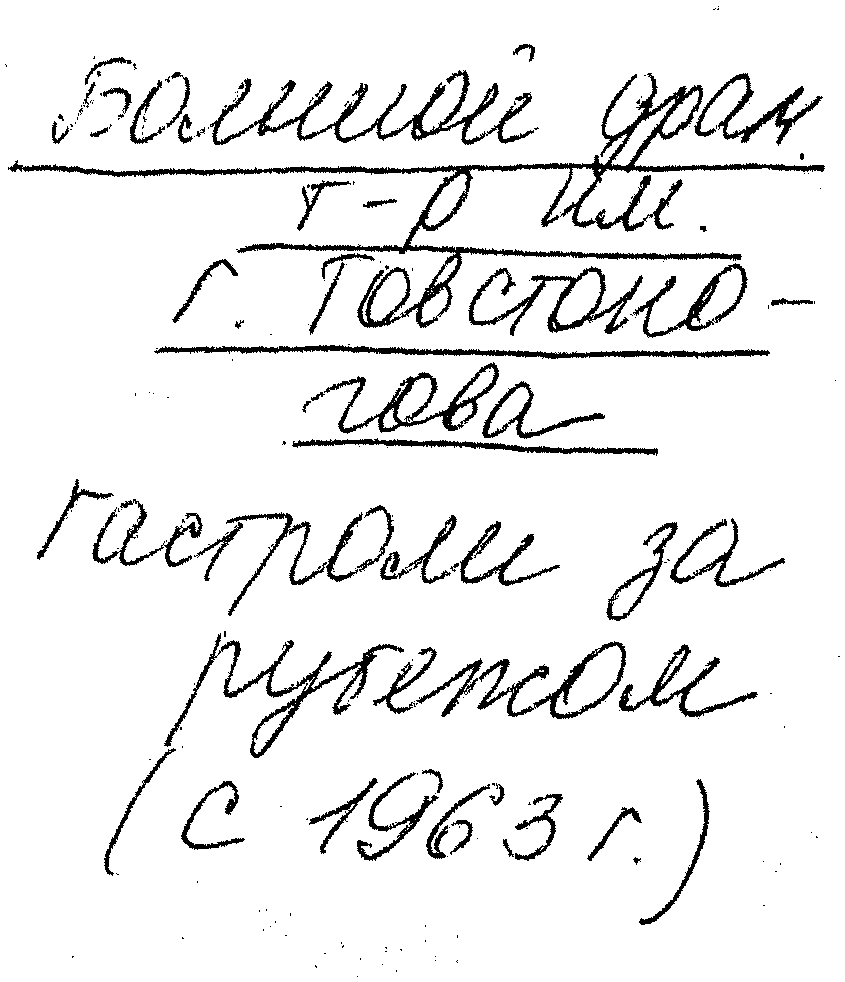 Большой драм.
т-р им.
Г. Товстоно-
гова
гастроли за
рубежом
(с 1963 г.)